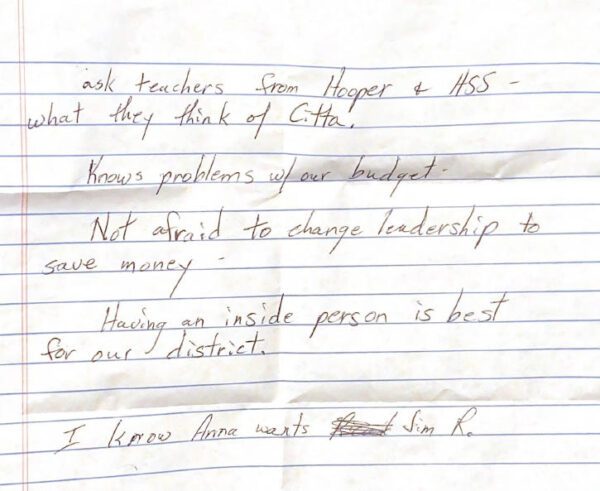 ask teachers from Hooper & HSS -
what they think of Citta.
Knows problems w/ our budget -
Not afraid to change leadership to
save money -
Having an inside person is best
for our district.
I know Anna wants Jim R.